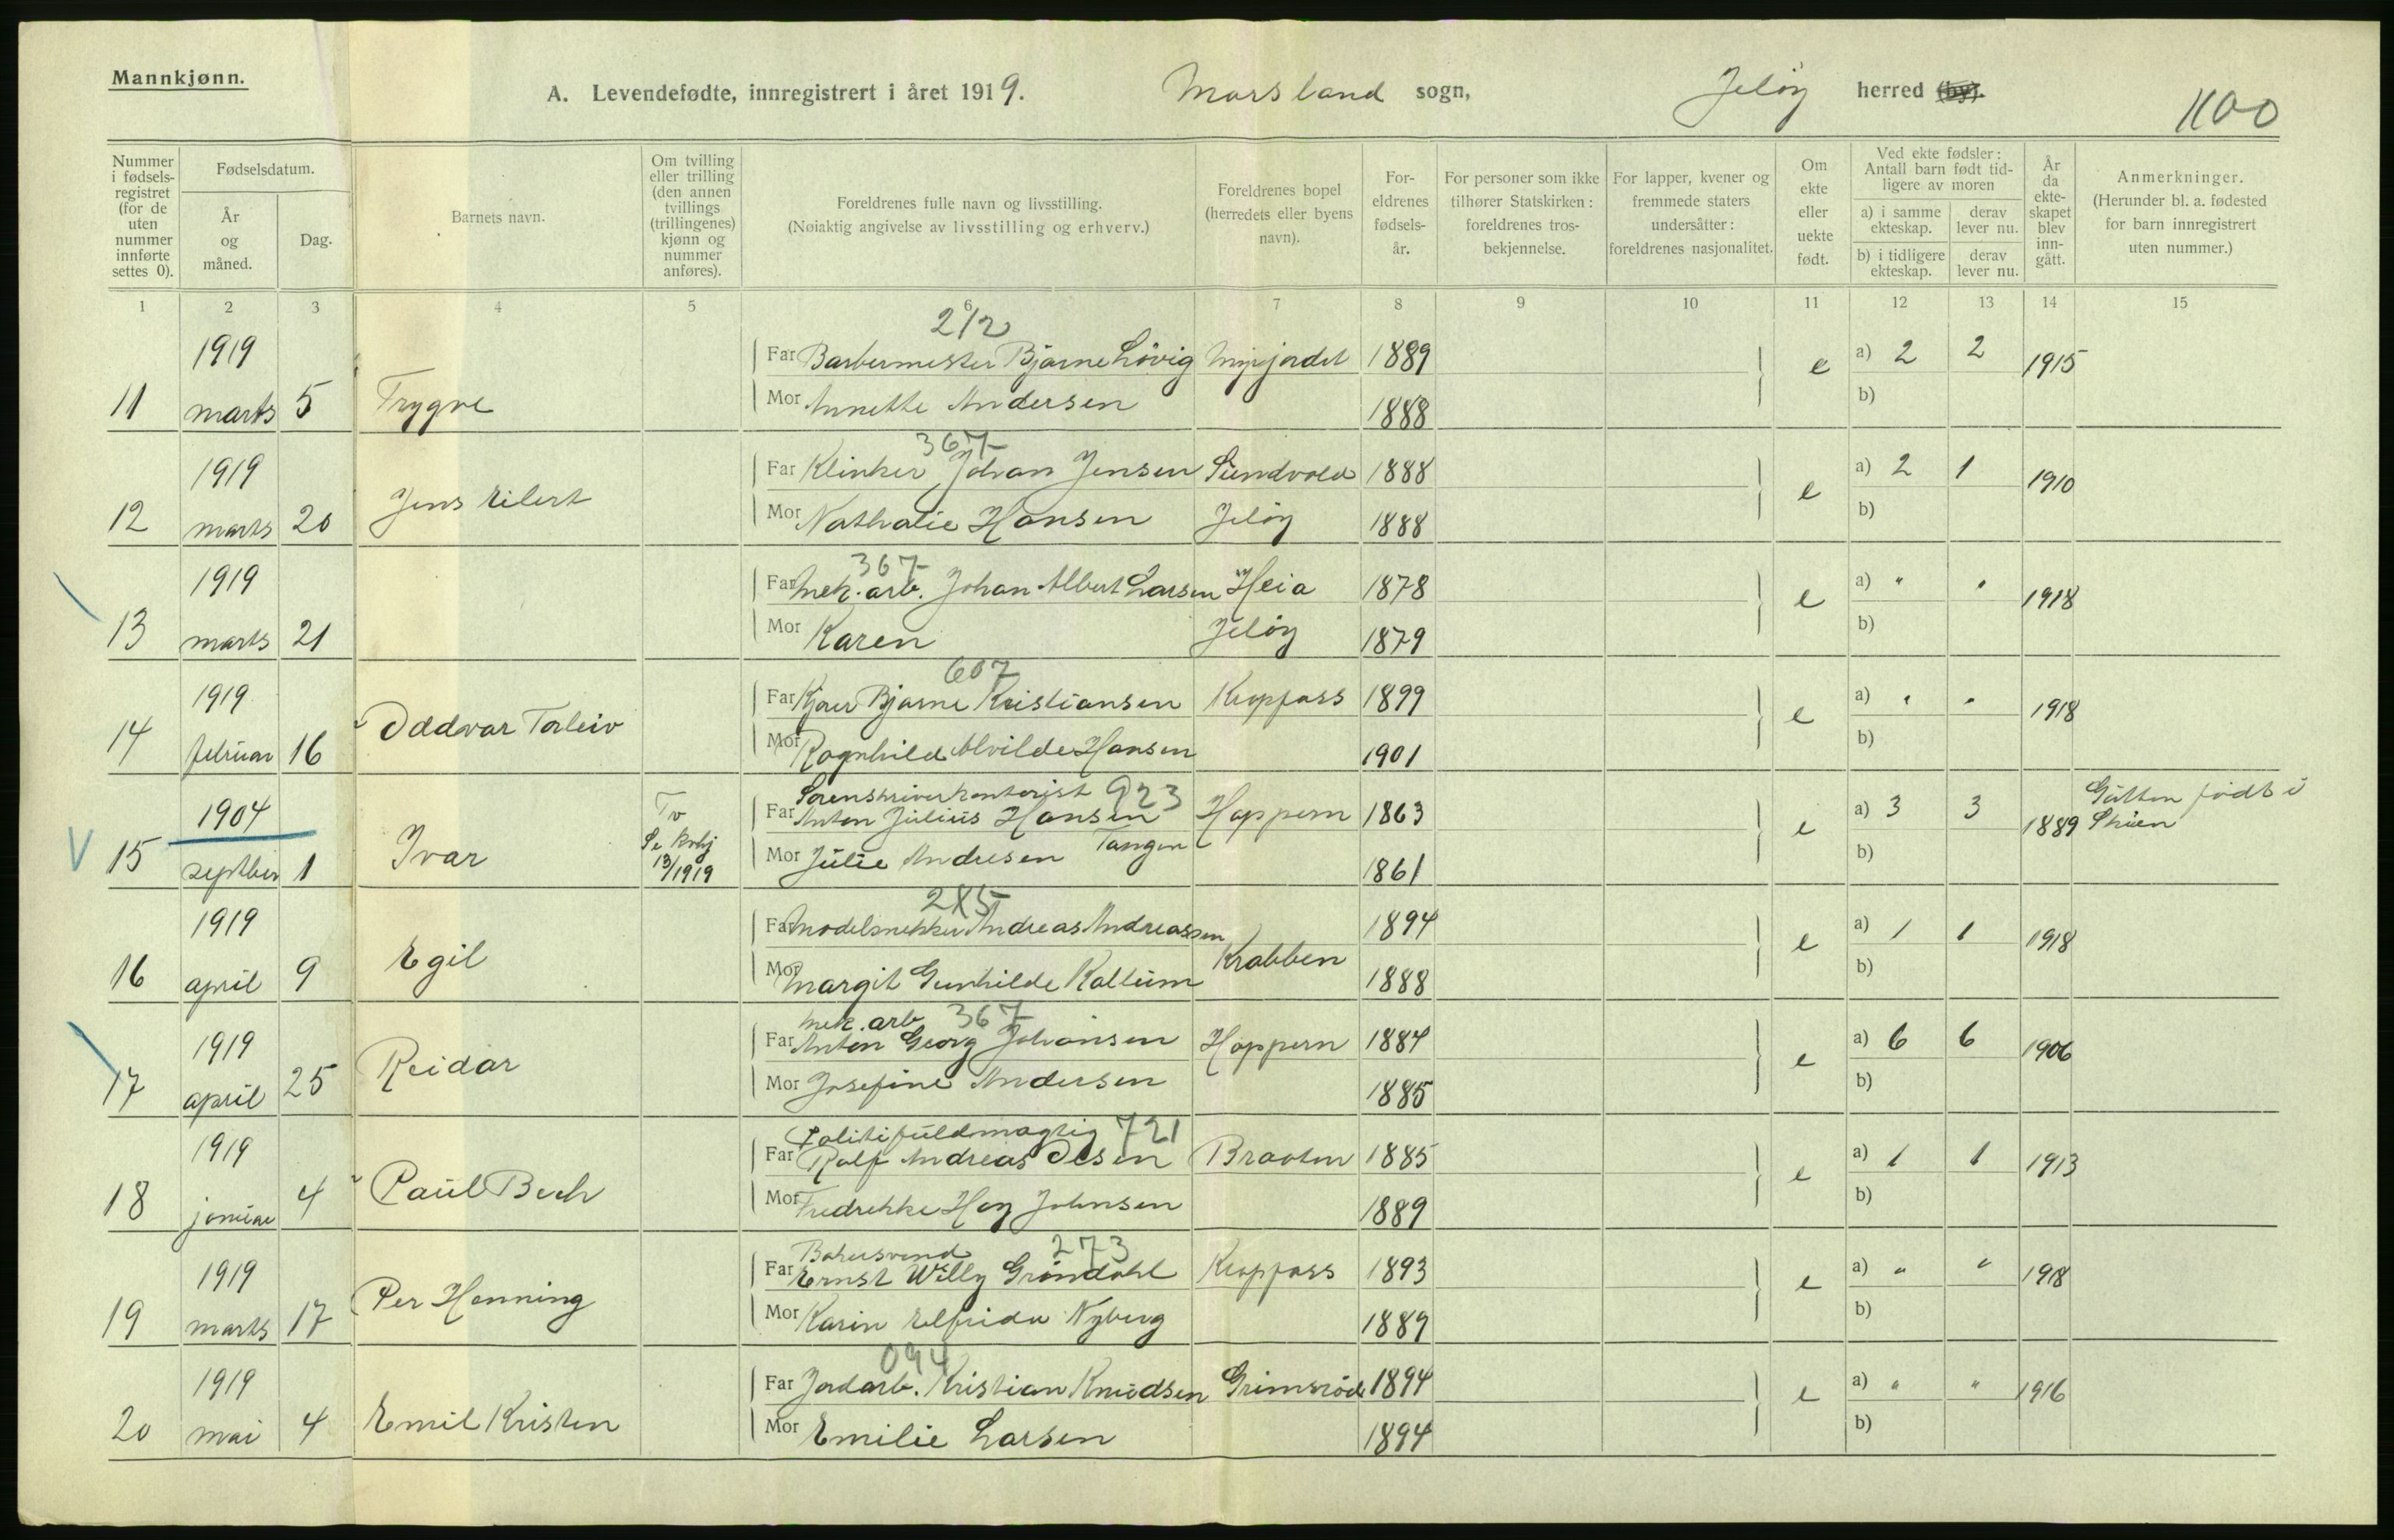 Mannkjønn.
A. Levendefødte, innregistrert i året 1919. Morsland sogn, Jeløy herred (by).
1100
Nummer i fødselsregistret (for de uten nummer innførte settes 0).
Fødselsdatum.
År og måned.
Dag.
Barnets navn.
Om tvilling eller trilling (den annen tvillings (trillingenes) kjønn og nummer anføres).
Foreldrenes fulle navn og livsstilling.
(Nøiaktig angivelse av livsstilling og erhverv.)
Foreldrenes bopel (herredets eller byens navn).
Foreldrenes fødselsår.
For personer som ikke tilhører Statskirken: foreldrenes trosbekjennelse.
For lapper, kvener og fremmede staters undersåtter: foreldrenes nasjonalitet.
Om ekte eller uekte født.
Ved ekte fødsler: Antall barn født tidligere av moren
a) i samme ekteskap. derav lever nu.
b) i tidligere ekteskap. derav lever nu.
År da ekteskapet blev inngått.
Anmerkninger.
(Herunder bl. a. fødested for barn innregistrert uten nummer.)
1 2 3 4 5 6 7 8 9 10 11 12 13 14 15
212
1919 Far Barbermester Bjarne Lövig Myrjordet 1889 e a) 2 2 1915
11 marts 5 Trygve Mor Annette Andersen 1888 b)
367
1919 Far Klinker Johan Jensen Sundvold 1888 e a) 2 1 1910
12 marts 20 Jens Eilert Mor Nathalie Hansen Jeløy 1888 b)
367
1919 Far Mek. arb. Johan Albert Larsen Heia 1878 e a) " " 1918
13 marts 21 Mor Karen Jeløy 1879 b)
607
1919 Far Bjarne Kristiansen Kropfoss 1899 e a) " " 1918
14 februar 16 Oddvar Torleiv Mor Ragnhild Alvilde Hansen 1901 b)
Sorenskriverkontorist 923
1904 Tv Far Anton Julius Hansen Hoppern 1863 e a) 3 3 1889 Gutten født i Skien
15 septbr 1 Ivar 13/1919 Mor Julie Andresen Tangen 1861 b)
285
1919 Far Modelsnekker Andreas Andreassen Krabben 1894 e a) 1 1 1918
16 april 9 Egil Mor Margit Gunhilde Kallum 1888 b)
Mek. arb 367
1919 Far Anton Georg Johansen Hoppern 1884 e a) 6 6 1906
17 april 25 Reidar Mor Josefine Andersen 1885 b)
Politifuldmægtig 721
1919 Far Rolf Andreas Olsen Braaten 1885 e a) 1 1 1913
18 januar 4 Paul Bech Mor Fredrikke Hoy Johnsen 1889 b)
Bakersvend 273
1919 Far Ernst Willy Gröndahl Kropfoss 1893 e a) " " 1918
19 marts 17 Per Henning Mor Karin Elfrida Nyberg 1889 b)
094
1919 Far Jordarb. Kristian Knudsen Grimsröd 1894 e a) " " 1916
20 mai 4 Emil Kristen Mor Emilie Larsen 1894 b)